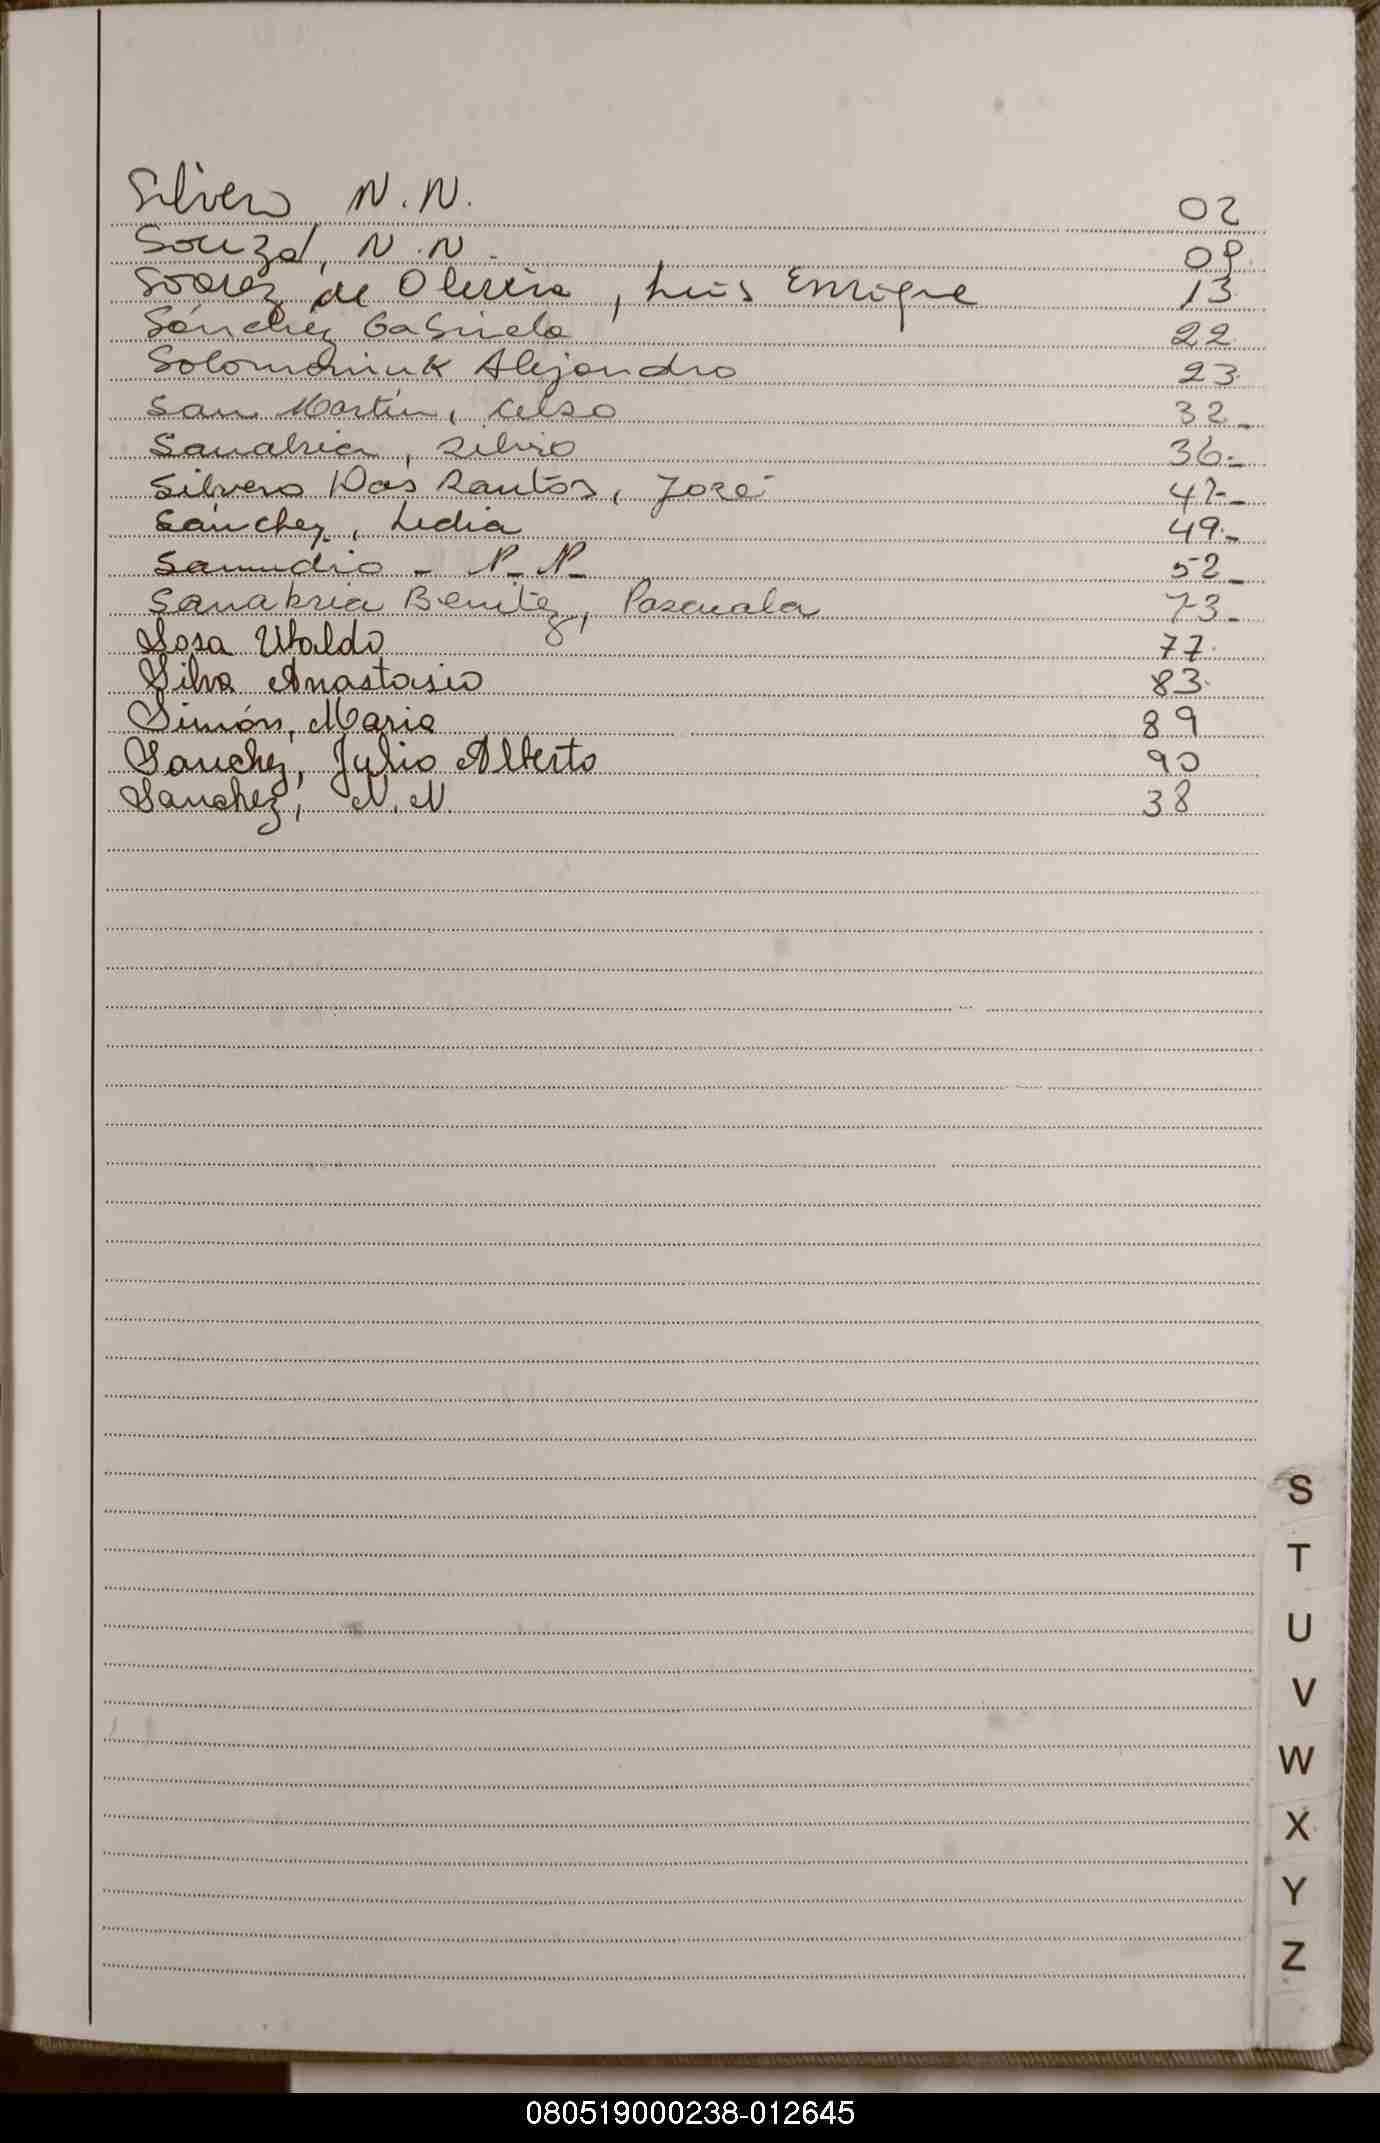 Silvero N.N. 02
Souza, N.N. 09
Soarez de Oliveira, Luis Enrique 13
Sánchez Gabriela 22
Solomoniuk Alejandro 23
San Martín, Celso 32_
Sanabria, Silvio 36_
Silvero Das Santos, José 47_
Sánchez, Lidia 49_
Samudio - N_ N_ 52_
Sanabria Benitez, Pascuala 73_
Sosa Ubaldo 77
Silva Anastasio 83
Simón, Maria 89
Sanchez, Julio Alberto 90
Sanchez, N.N. 38
S
T
U
V
W
X
Y
Z
080519000238-012645